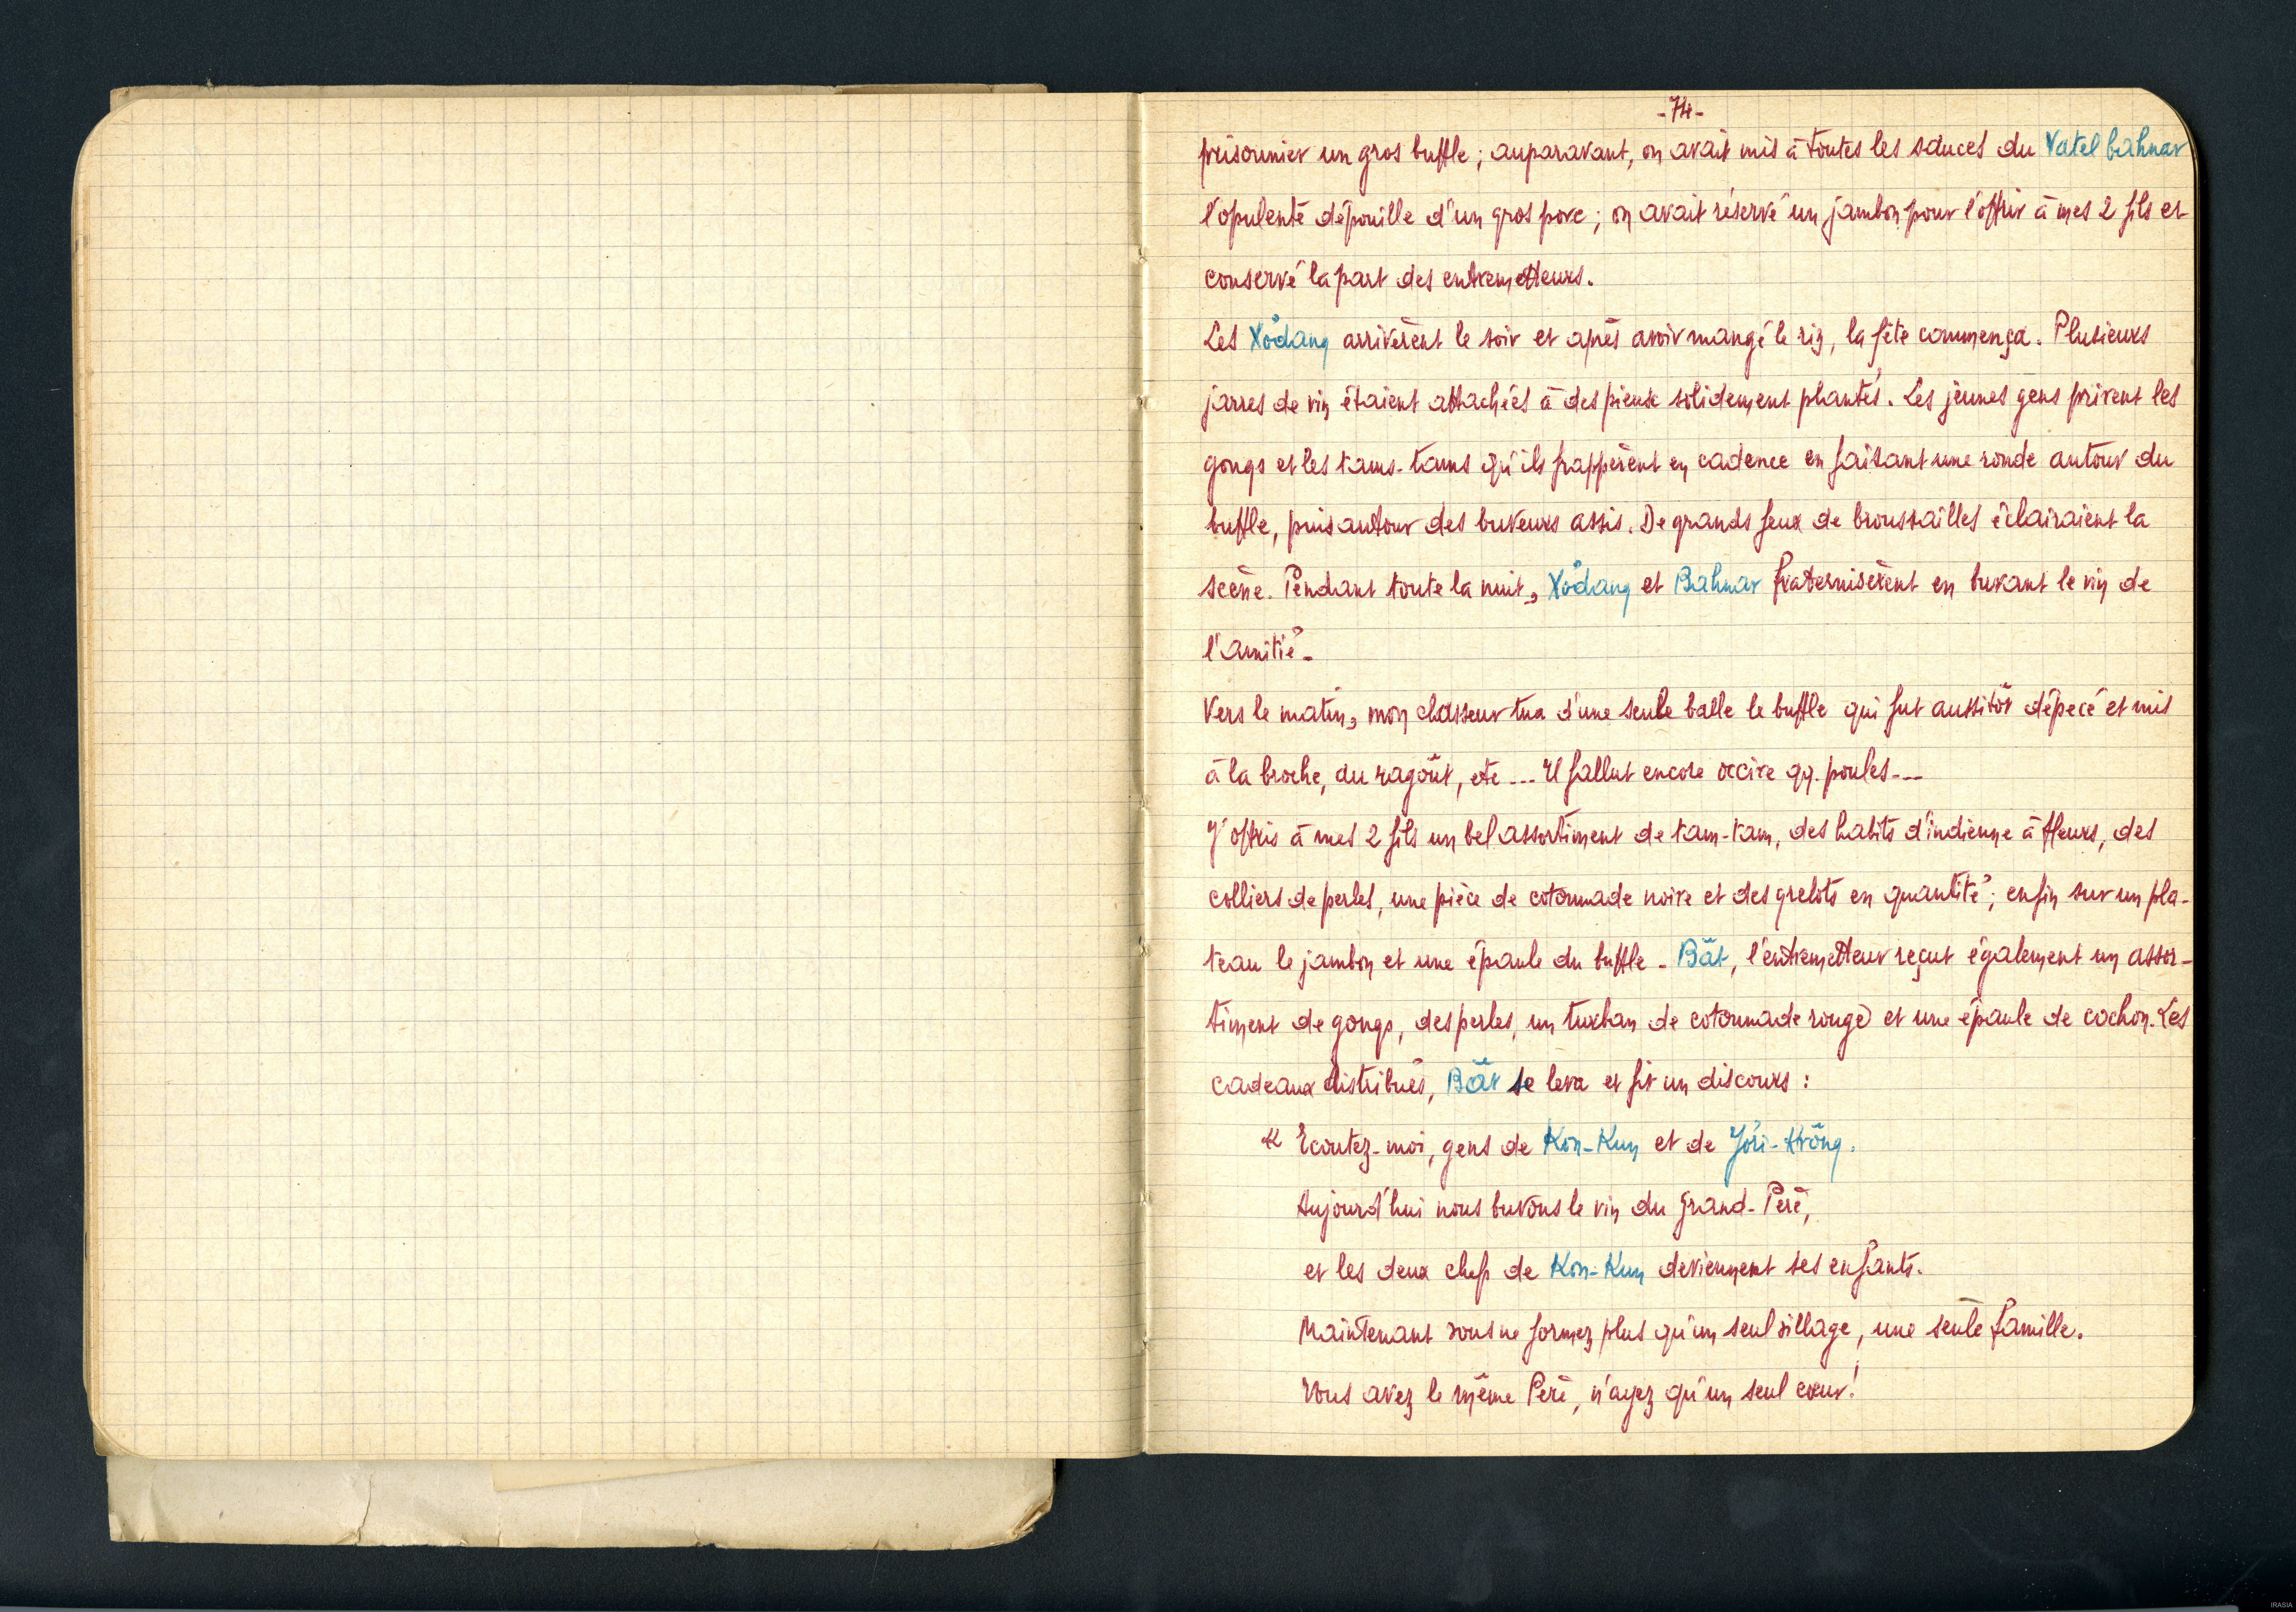 -74-
prisonnier un gros buffle ; auparavant, on avait mis à toutes les sauces du Vatel bahnar
l'opulente dépouille d'un gros porc ; on avait réservé un jambon pour l'offrir à mes 2 fils et
conservé la part des entremetteurs.
Les Xơ̆dang arrivèrent le soir et après avoir mangé le riz, la fête commença. Plusieurs
jarres de vin étaient attachées à des pieux solidement plantés. Les jeunes gens prirent les
gongs et les tams-tams qu'ils frappèrent en cadence en faisant une ronde autour du
buffle, puis autour des buveurs assis. De grands feux de broussailles éclairaient la
scène. Pendant toute la nuit, Xơ̆dang et Bahnar fraternisèrent en buvant le vin de
l'amitié.
Vers le matin, mon chasseur tua d'une seule balle le buffle qui fut aussitôt dépecé et mis
à la broche, du ragoût, etc ... Il fallut encore occire qq. poules...
J'offris à mes 2 fils un bel assortiment de tam-tam, des habits d'indienne à fleurs, des
colliers de perles, une pièce de cotonnade noire et des grelots en quantité ; enfin sur un pla-
teau le jambon et une épaule du buffle. Băt, l'entremetteur reçut également un assor-
timent de gongs, des perles, un turban de cotonnade rouge et une épaule de cochon. Les
cadeaux distribués, Băt se leva et fit un discours :
« Ecoutez-moi, gens de Kon-Kun et de Jơri-Krông.
Aujourd'hui nous buvons le vin du Grand-Père,
et les deux chefs de Kon-Kun deviennent ses enfants.
Maintenant vous ne formez plus qu'un seul village, une seule famille.
Vous avez le même Père, n'ayez qu'un seul cœur !
IRASIA